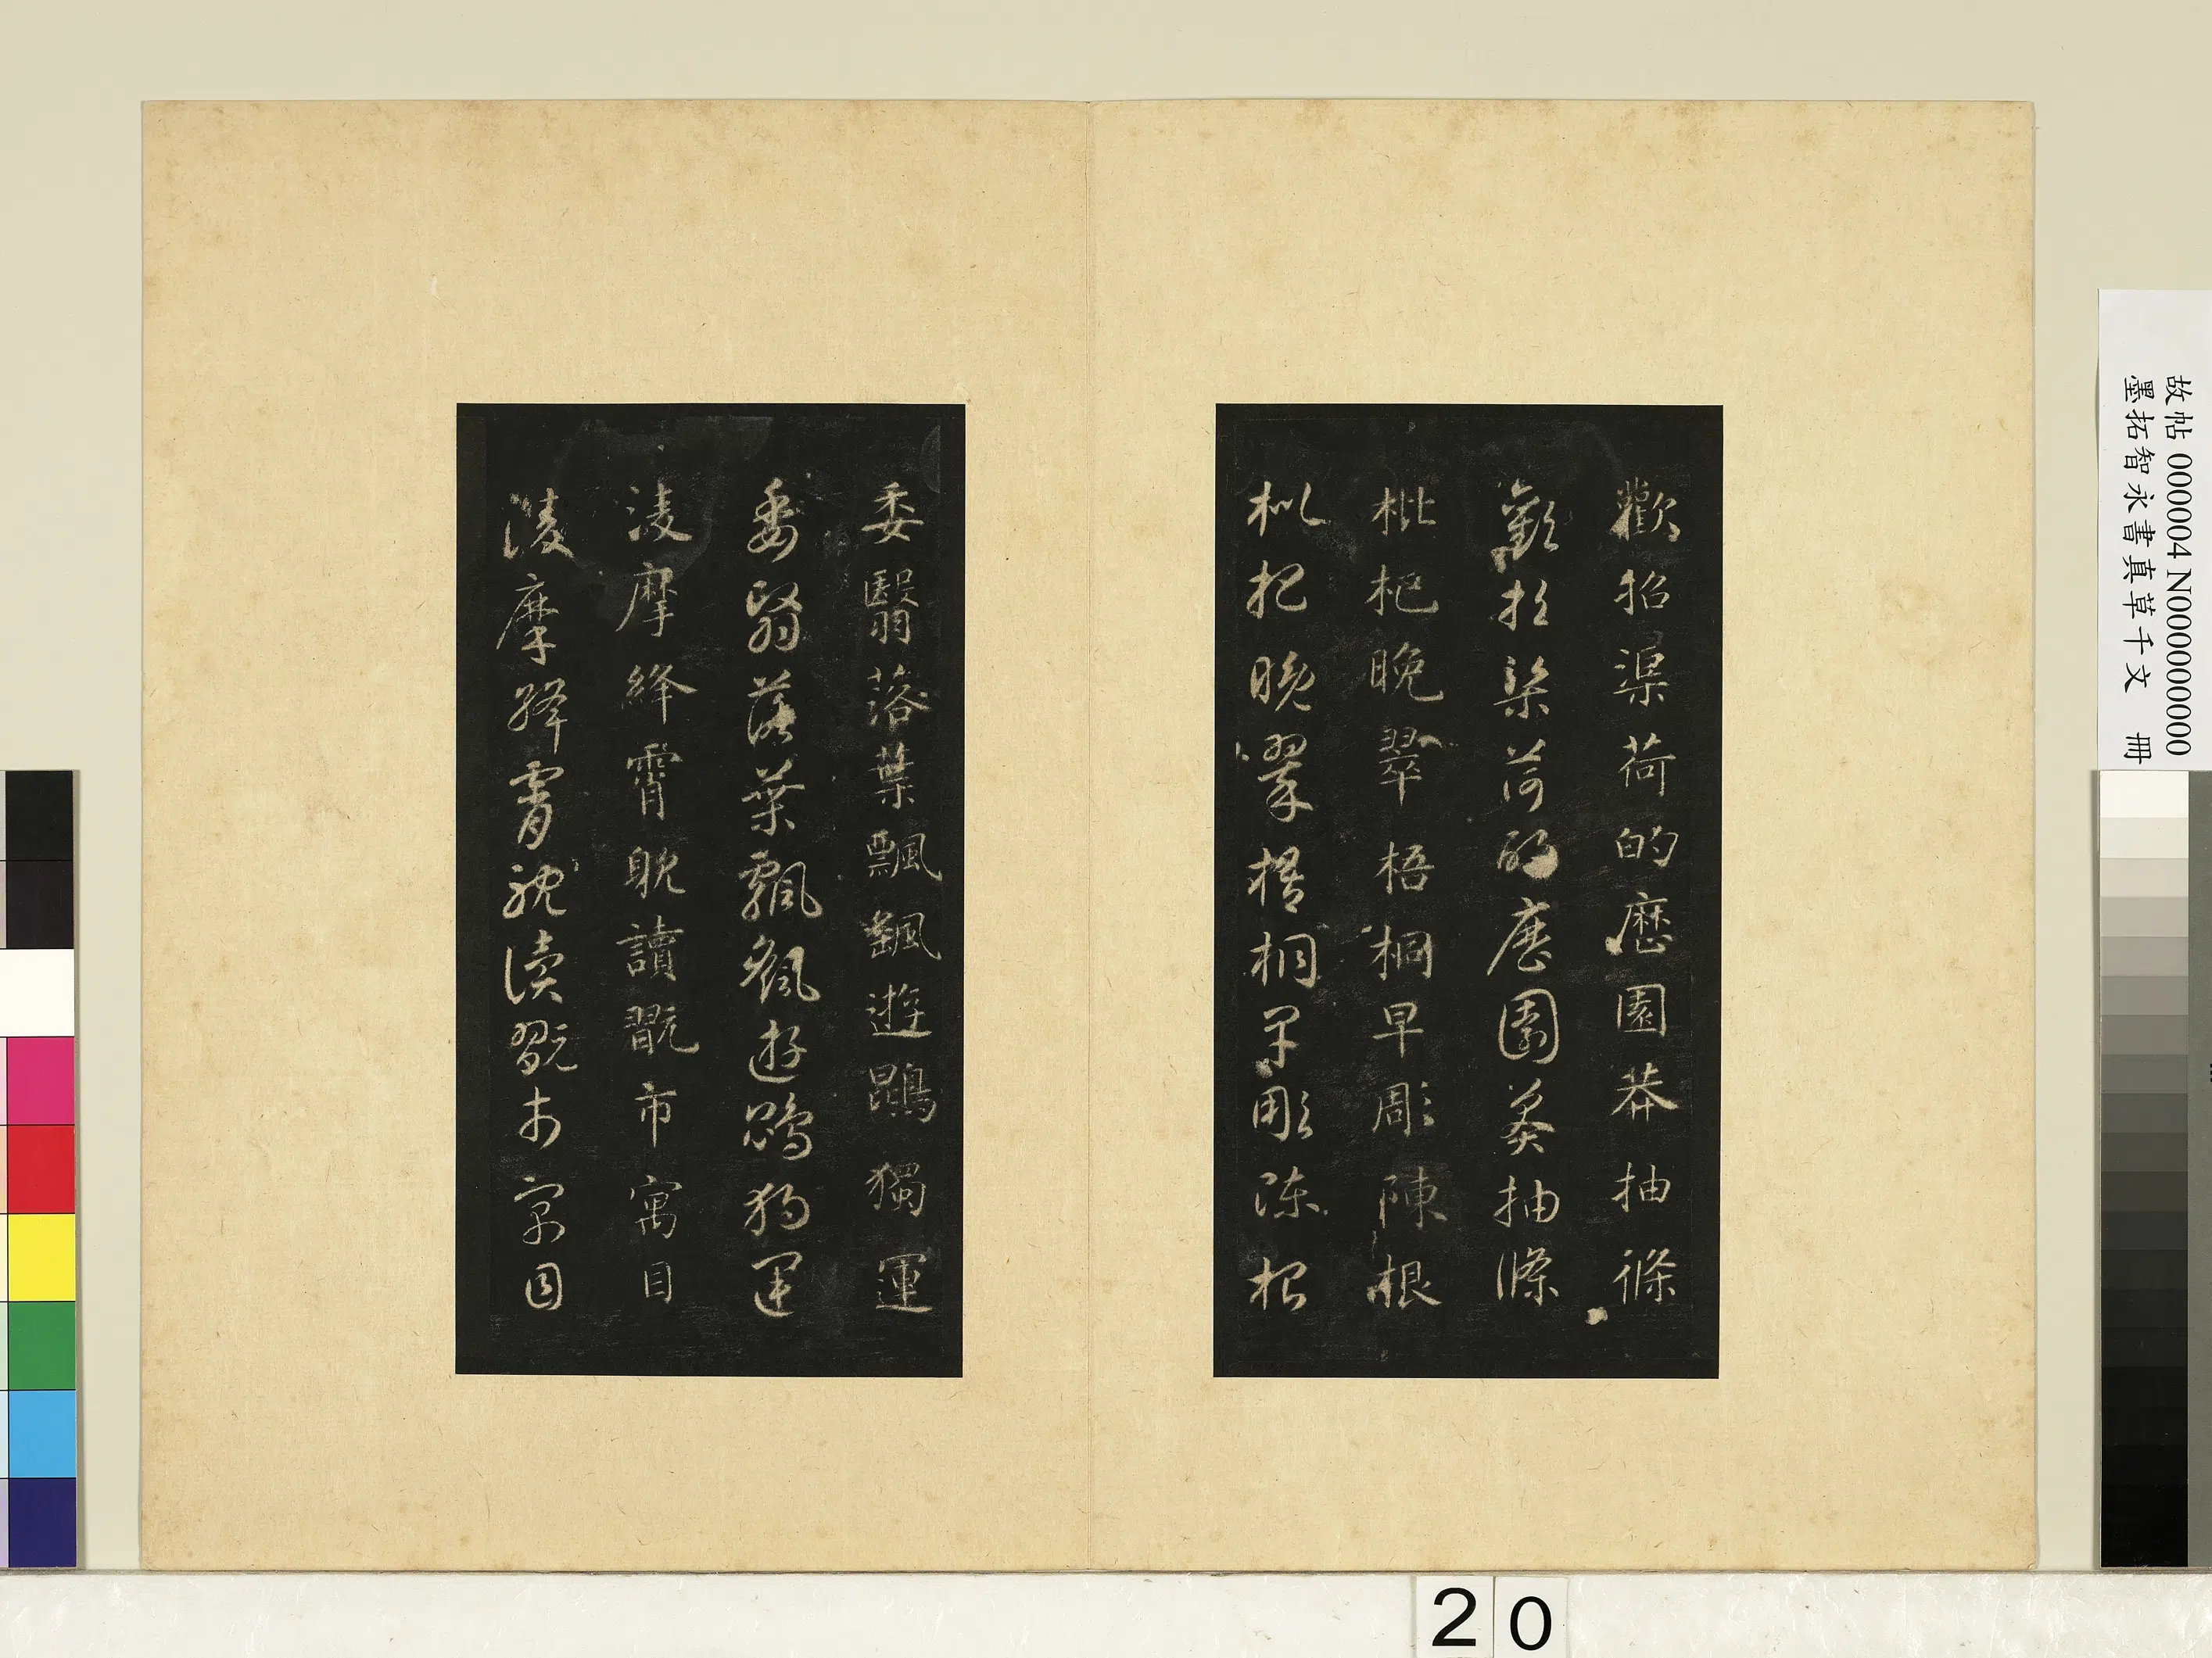 歡招渠荷的歷園莽抽條
歡招渠荷的歷園莽抽條
枇杷晚翠梧桐早彫陳根
枇杷晚翠梧桐早彫陳根
委翳落葉飄颻遊鵾獨運
委翳落葉飄颻遊鵾獨運
淩摩絳霄耽讀翫市寓目
淩摩絳霄耽讀翫市寓目
故帖 000004 N000000000
墨拓智永書真草千文 冊
20